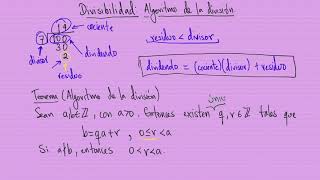 Divisibilidad: Algoritmo de la división
14
cociente
7
100
30
2
divisor
dividendo
residuo
residuo < divisor
dividendo = (cociente)(divisor) + residuo
Teorema (Algoritmo de la división)
únic
Sean a,b∈ℤ, con a>0. Entonces existen q,r∈ℤ tales que
b=qa+r, 0≤r<a
Si a∤b, entonces 0<r<a.